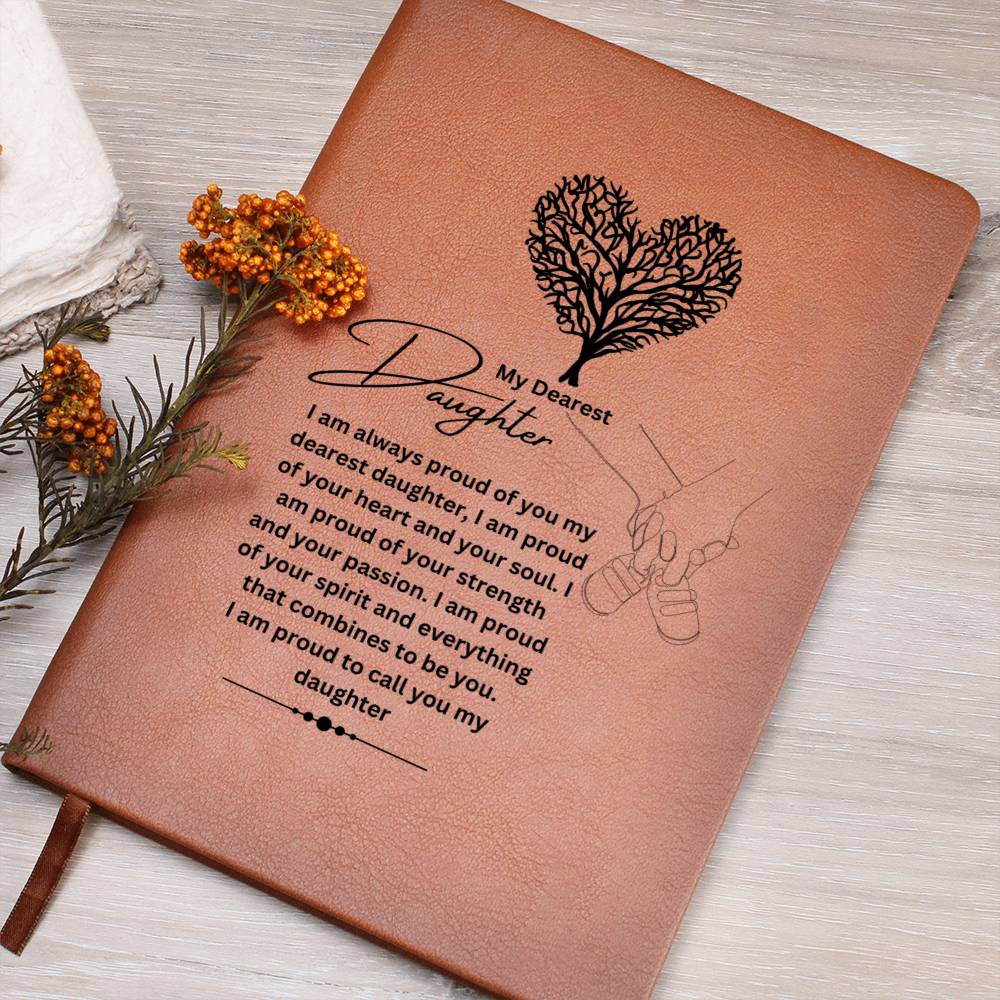 My Dearest
Daughter
I am always proud of you my
dearest daughter, I am proud
of your heart and your soul. I
am proud of your strength
and your passion. I am proud
of your spirit and everything
that combines to be you.
I am proud to call you my
daughter